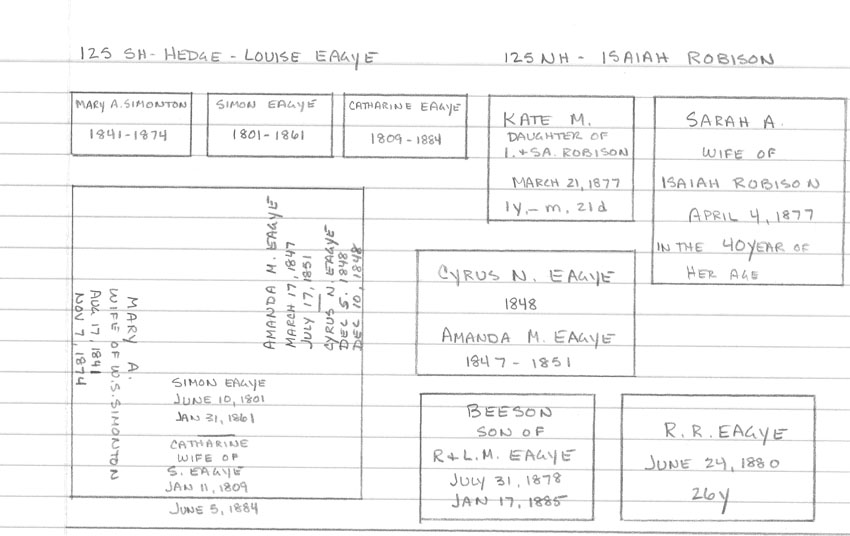 125 SH - HEDGE - LOUISE EAGYE
125 NH - ISAIAH ROBISON
MARY A. SIMONTON
1841-1874
SIMON EAGYE
1801-1861
CATHARINE EAGYE
1809-1884
KATE M.
DAUGHTER OF
I. & SA. ROBISON
MARCH 21, 1877
1y, - m, 21d
SARAH A.
WIFE OF
ISAIAH ROBISON
APRIL 4, 1877
IN THE 40 YEAR OF
HER AGE
AMANDA M. EAGYE
MARCH 17, 1847
JULY 17, 1851
CYRUS N. EAGYE
DEC 5. 1848
DEC 10, 1848
MARY A.
WIFE OF W.S. SIMONTON
AUG 17, 1841
NOV 7, 1874
SIMON EAGYE
JUNE 10, 1801
JAN 31, 1861
CATHARINE
WIFE OF
S. EAGYE
JAN 11, 1809
JUNE 5, 1884
CYRUS N. EAGYE
1848
AMANDA M. EAGYE
1847 - 1851
BEESON
SON OF
R & L.M. EAGYE
JULY 31, 1878
JAN 17, 1885
R. R. EAGYE
JUNE 24, 1880
26y